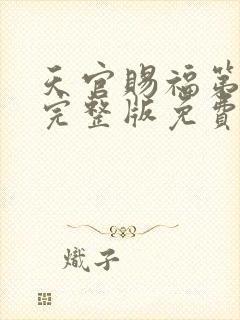 天官賜福第
完整版免費
熾子